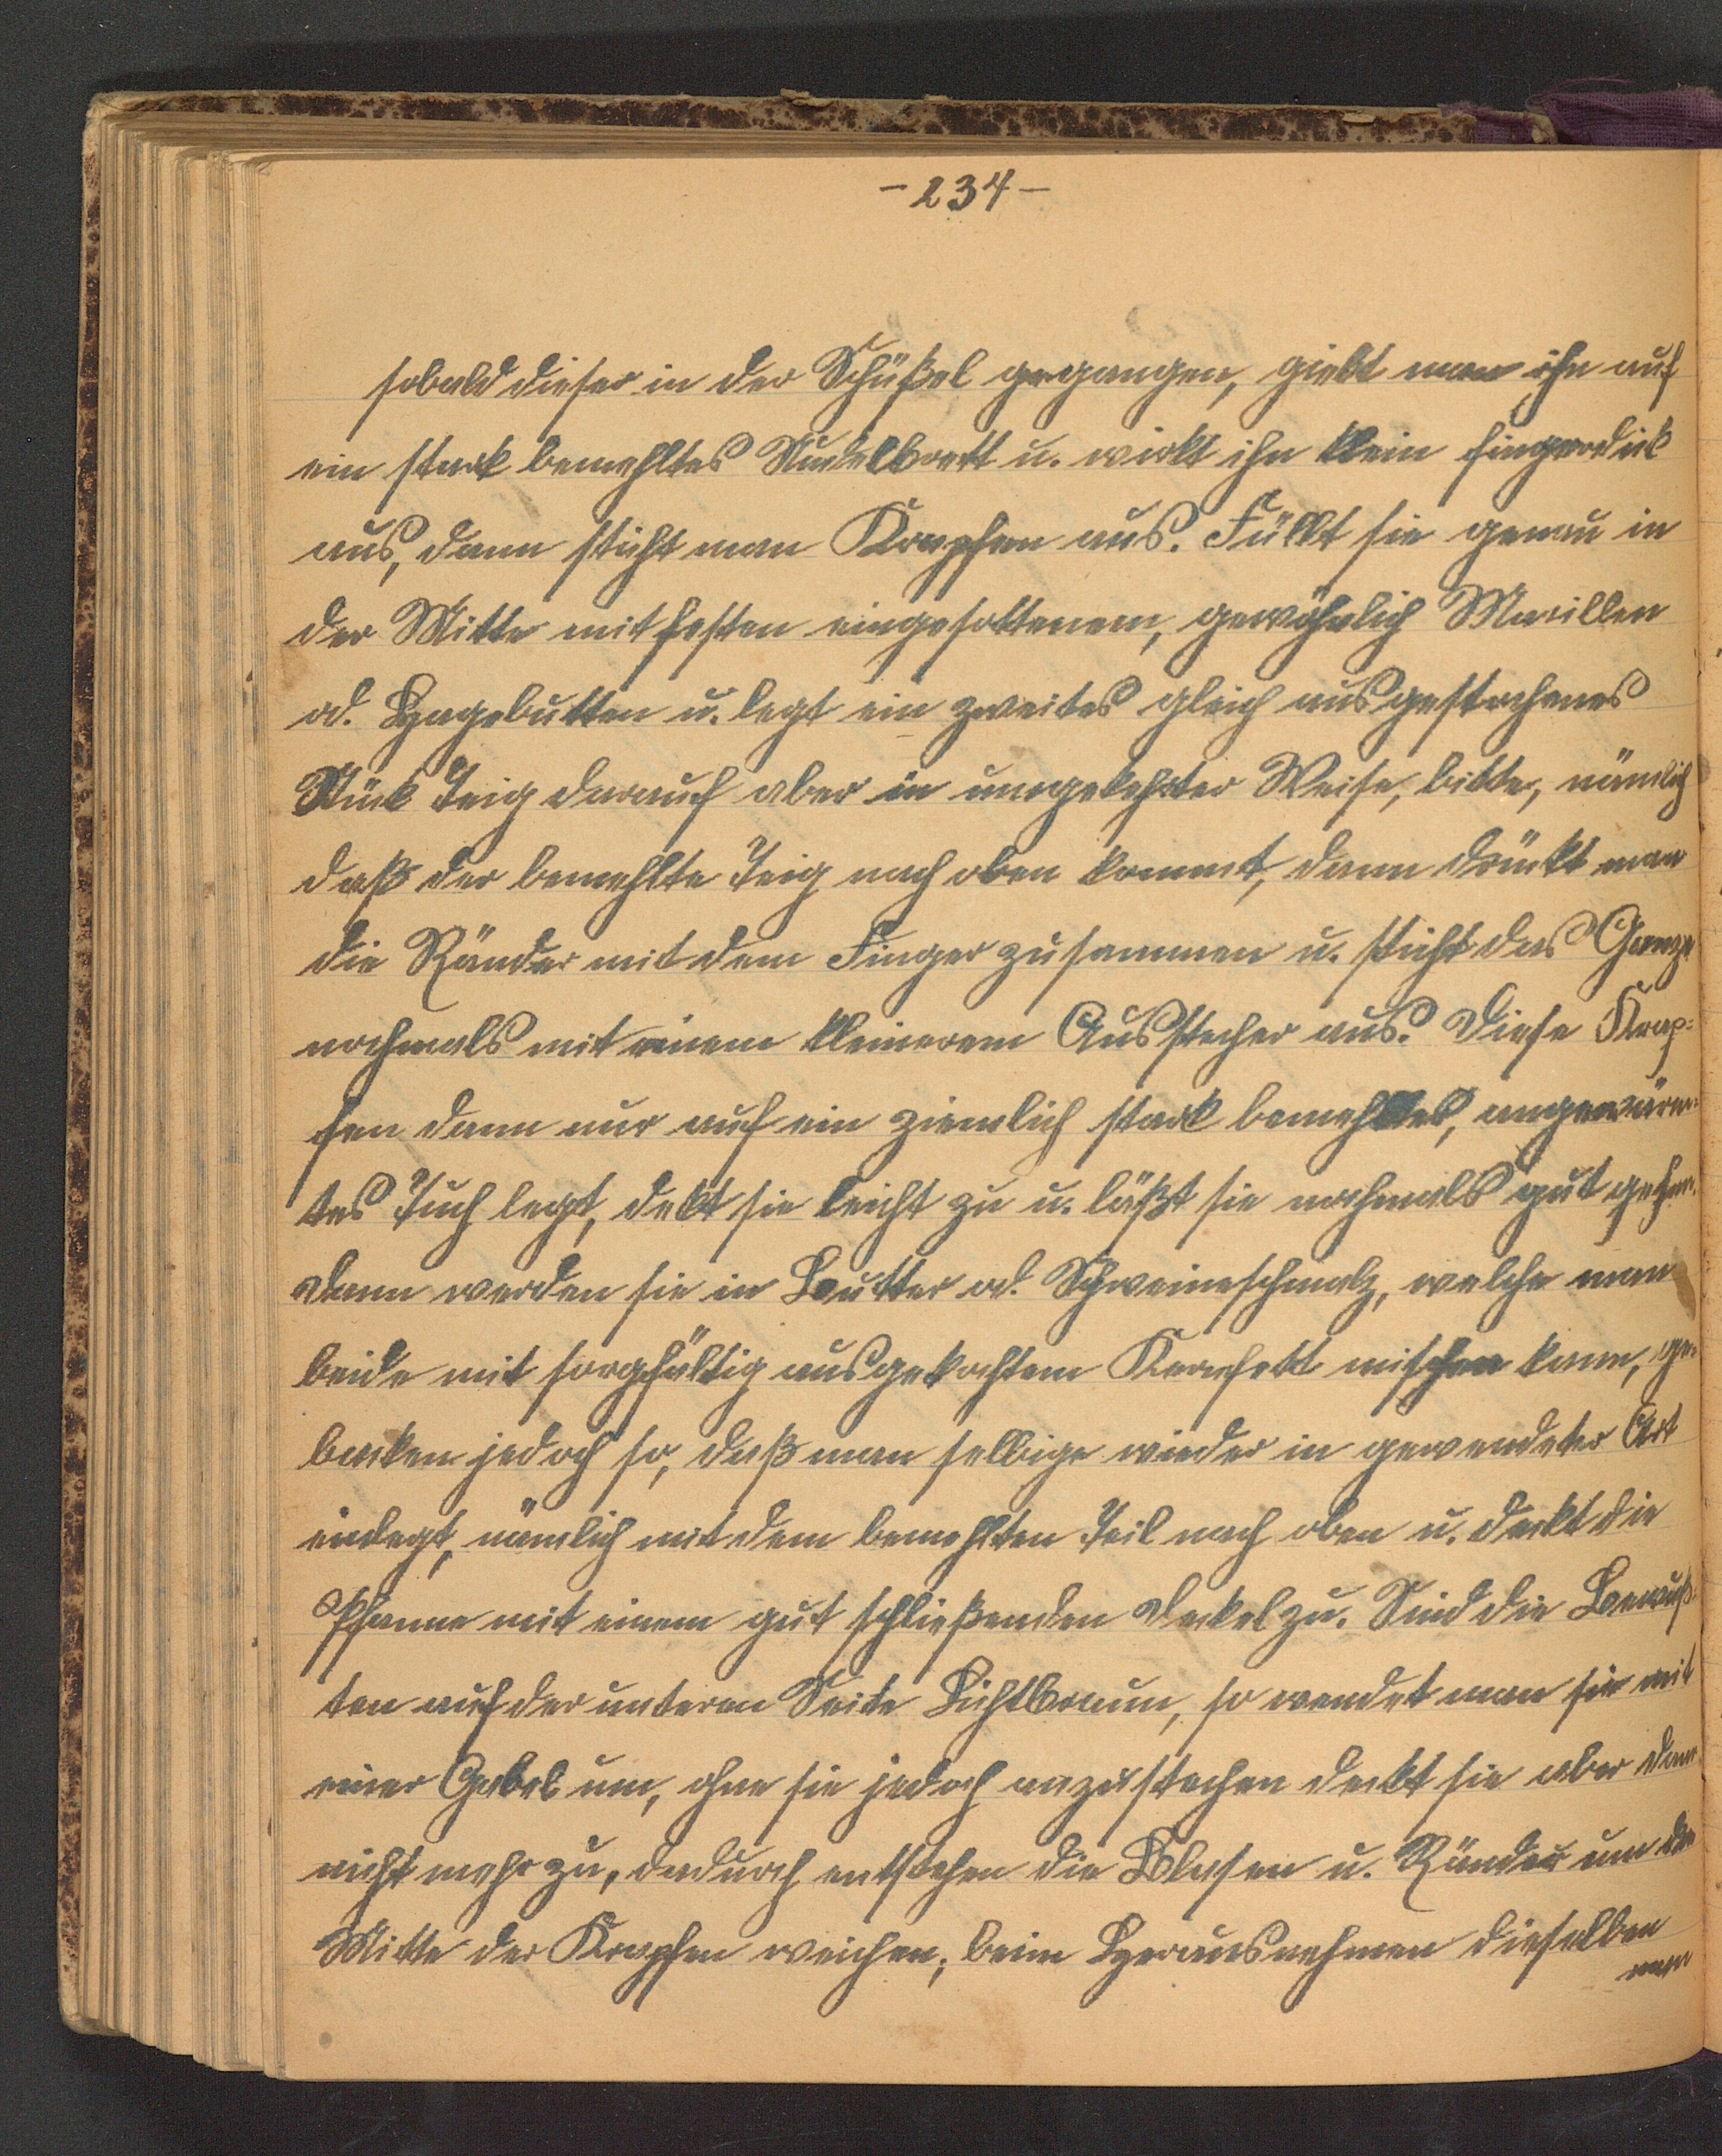 - 234 -
sobald dieser in der Schüßel gegangen, giebt man ihn auf
ein stark bemehltes Nudelbrett u. wirkt ihn klein fingerdik
aus, dann sticht man Krapfen aus. Füllt sie genau in
der Mitte mit festen eingesottenem, gewöhnlich Marillen
od. Hagebutten u. legt ein zweites gleich ausgestochenes
Stück Teig darauf aber in umgekehrter Weise, bitte, nämlich
daß der bemehlte Teig nach oben kommt, dann drückt man
die Ränder mit dem Finger zusammen u. sticht das Ganze
nochmals mit einem kleinerem Ausstecher aus. Diese Krap=
fen dann nur auf ein ziemlich stark bemehltes, angewärm=
tes Tuch legt, dekt sie leicht zu u. läßt sie nochmals gut gehen.
Dann werden sie in Butter od. Schweineschmalz, welche man
beide mit sorgfältig ausgekochtem Kernfett mischen kann, ge=
backen jedoch so, daß man selbige wieder in gewendeter Art
einlegt, nämlich mit dem bemehlten Teil nach oben u. deckt die
Pfanne mit einem gut schließenden Deckel zu. Sind die
ten auf der unteren Seite Lichtbraun, so wendet man sie mit
einer Gabel um, ohne sie jedoch anzustechen deckt sie aber dann
nicht mehr zu, dadurch entstehen die Blasen u. Ränder um die
Mitte der Krapfen weichen; beim Herausnehmen dieselben
man